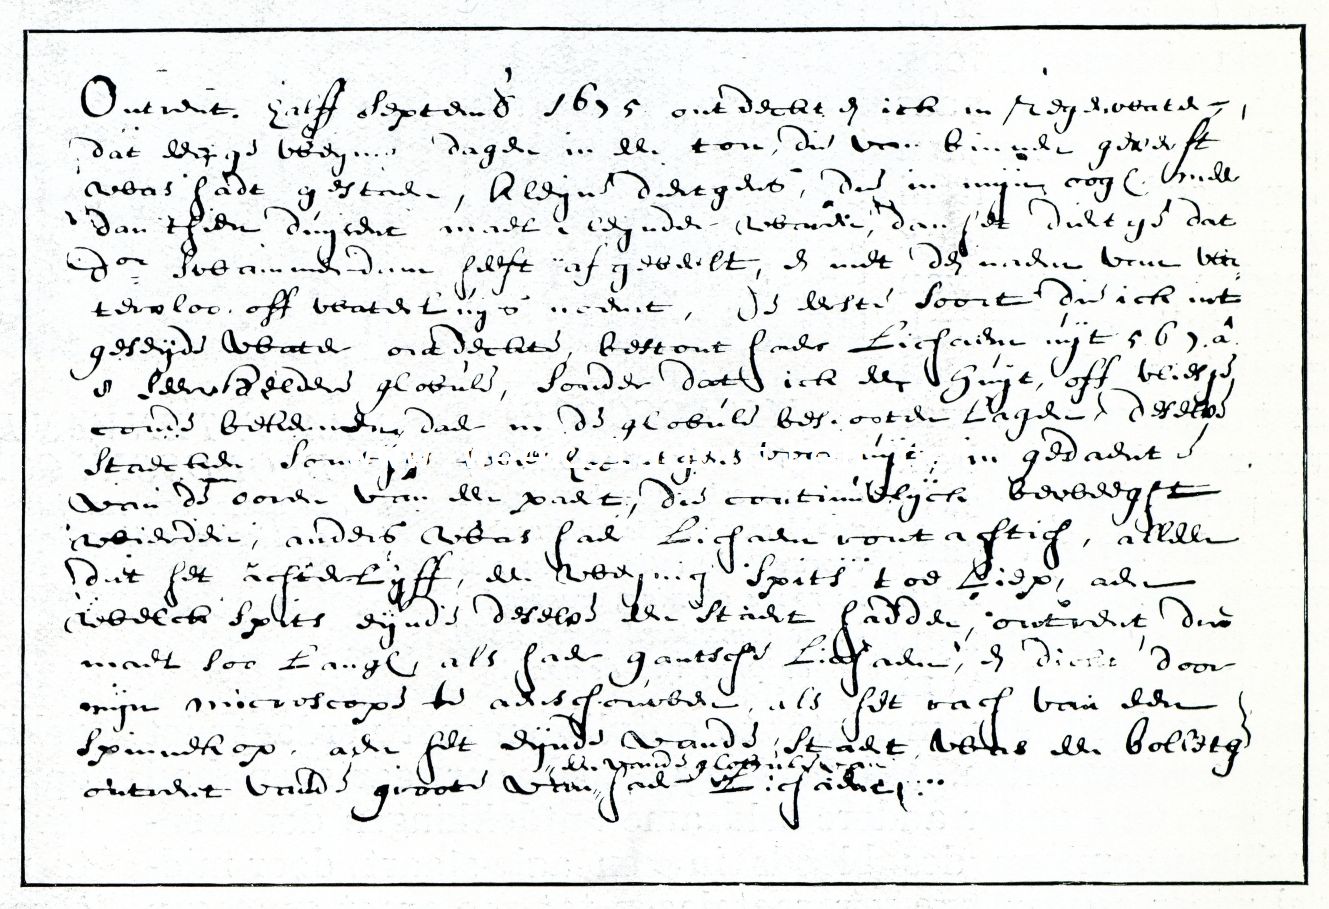 Ontrent. halff Septemb 1675 ontdeckte ick in Regenwater,
dat eenige weynig dagen in een ton, die van binnen geverft
was hadt gestaen, kleyne diertgens, die in mijn oogh meer
dan thien duijsent mael cleynder waren, dan het diertge dat
Dor Swammerdam heeft afgebeelt, en met de naem van wa-
tervloo. off waterluijs noemt, De eerste soort die ick int
geseijde water ontdeckte, bestont haer Lichaem uijt 5 6 7. â
8 seer heldere globule, sonder dat ick een Huijt, off vliesje
conde bekennen, daer in de globule beslooten Lagen, deselve
staecken somtijts twee hoorntgens voor uijt, in gedaente
van de ooren van een paert, die continuelijck beweeght
wierden, anders was haer Lichaem rontachtich, alleen
dat het achterlijff, een weijnig spits toe Liep, aen
welck spits eijnde deselve een staert hadden, ontrent drie
mael soo Langh, als haer gantsche Lichaem, en dickte door
mijn microscope te aenschouwen, als het rach van een
spinnekop. aen het eijnde vande staert was een bolletge
een vande globule van
ontrent vande groote van haer Lichaem,